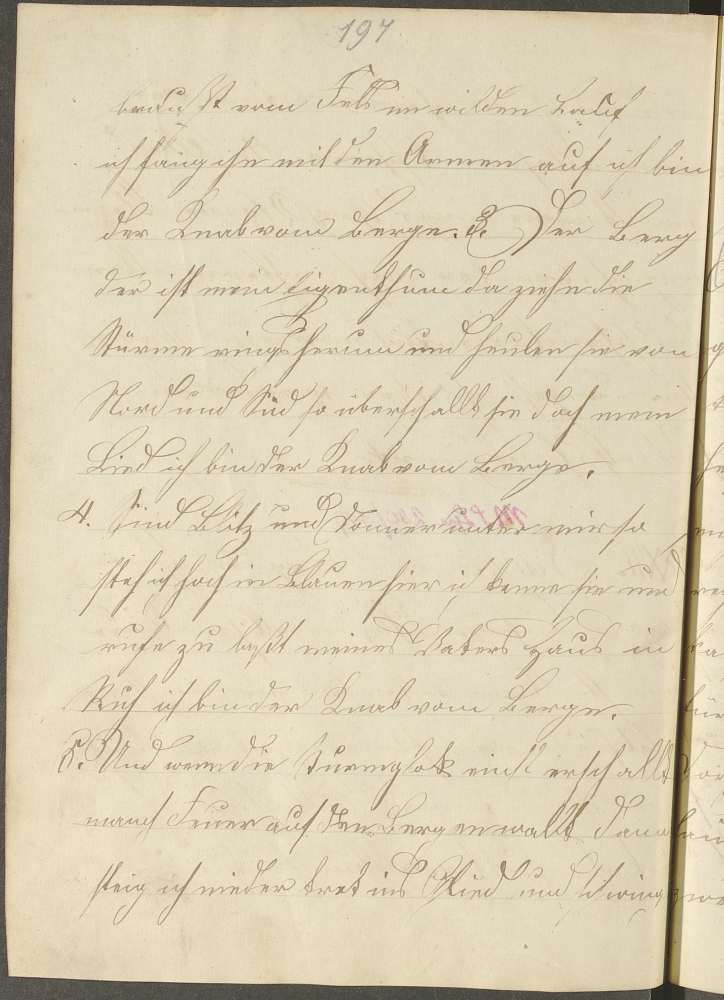 197
braußt vom Fels im wilden Lauf
ich fang ihn mit den Armen auf ich bin
der Knab vom Berge. 3. Der Berg
der ist mein Eigenthum da ziehn die
Stürme rings herum und heulen sie von
Nord und Süd so überschallt sie doch mein
Lied ich bin der Knab vom Berge.
4. Sind Blitz und Donner unter mir so
steh ich hoch im Blauen hier ich kenne sie und
rufe zu laßt meines Vaters Haus in
Ruh ich bin der Knab vom Berge.
5. Und wenn die Sturmglok einst erschallt
manch Feuer auf den Bergen wallt dann
steig ich nieder tret ins Glied und schwing